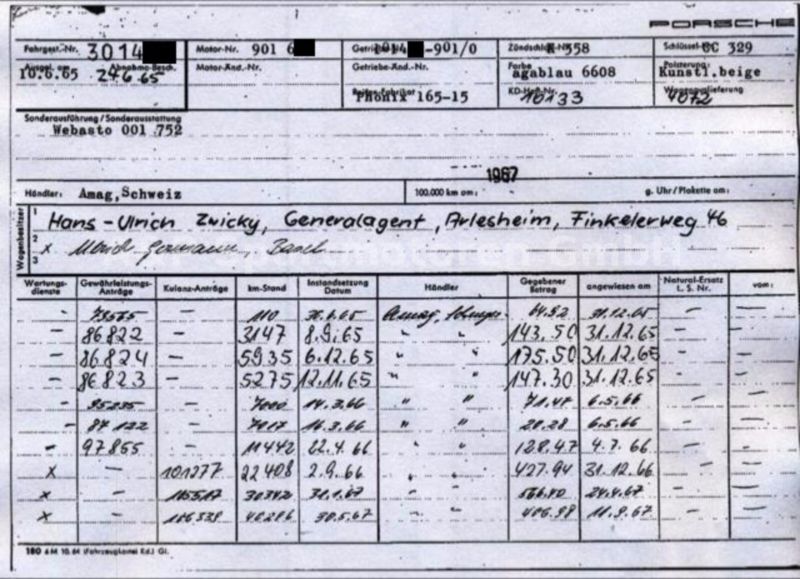 PORSCHE
Fahrgest.-Nr. 3014 Motor-Nr. 901 6 Getriebe-Nr. -901/0 Zündschloß-Nr. K 558 Schlüssel-Nr. CC 329
Ausgel. am 10.6.65 Abnahme-Besch. 24.6.65 Motor-Änd.-Nr. Getriebe-Änd.-Nr. Farbe agablau 6608 Polsterung: Kunstl.beige
Reifen-Fabrikat Phönix 165-15 KD-Heft-Nr. 10133 Wagenauslieferung 4072
Sonderausführung / Sonderausstattung
Webasto 001 752
1967
Händler: Amag,Schweiz 100.000 km am: g. Uhr / Plakette am:
Wagenbesitzer
1 Hans-Ulrich Zwicky, Generalagent, Arlesheim, Finkelerweg 46
2 x Basel
3
Wartungs-dienste Gewährleistungs-Anträge Kulanz-Anträge km-Stand Instandsetzung Datum Händler Gegebener Betrag angewiesen am Natural-Ersatz L. S. Nr. vom:
- - 110 Amag, 31.12.65 - -
- 86822 - 3147 8.9.65 " " 143.50 31.12.65 - -
- 86824 - 5935 6.12.65 " " 175.50 31.12.65 - -
- 86823 - 5275 12.11.65 " " 147.30 31.12.65 - -
- 95235 - 7000 14.3.66 " " 71.47 6.5.66 - -
- 87122 - 7017 16.3.66 " " 20.28 6.5.66 - -
- 97855 - 11442 22.4.66 " " 128.47 4.7.66 - -
x - 101277 22408 2.9.66 " " 427.94 31.12.66 - -
x - 30342 31.1.67 " " 24.4.67 - -
x - 106339 40286 30.5.67 " " 406.98 11.9.67 - -
180 6M 10.64 (Fahrzeugkartei Kd.) Gl.